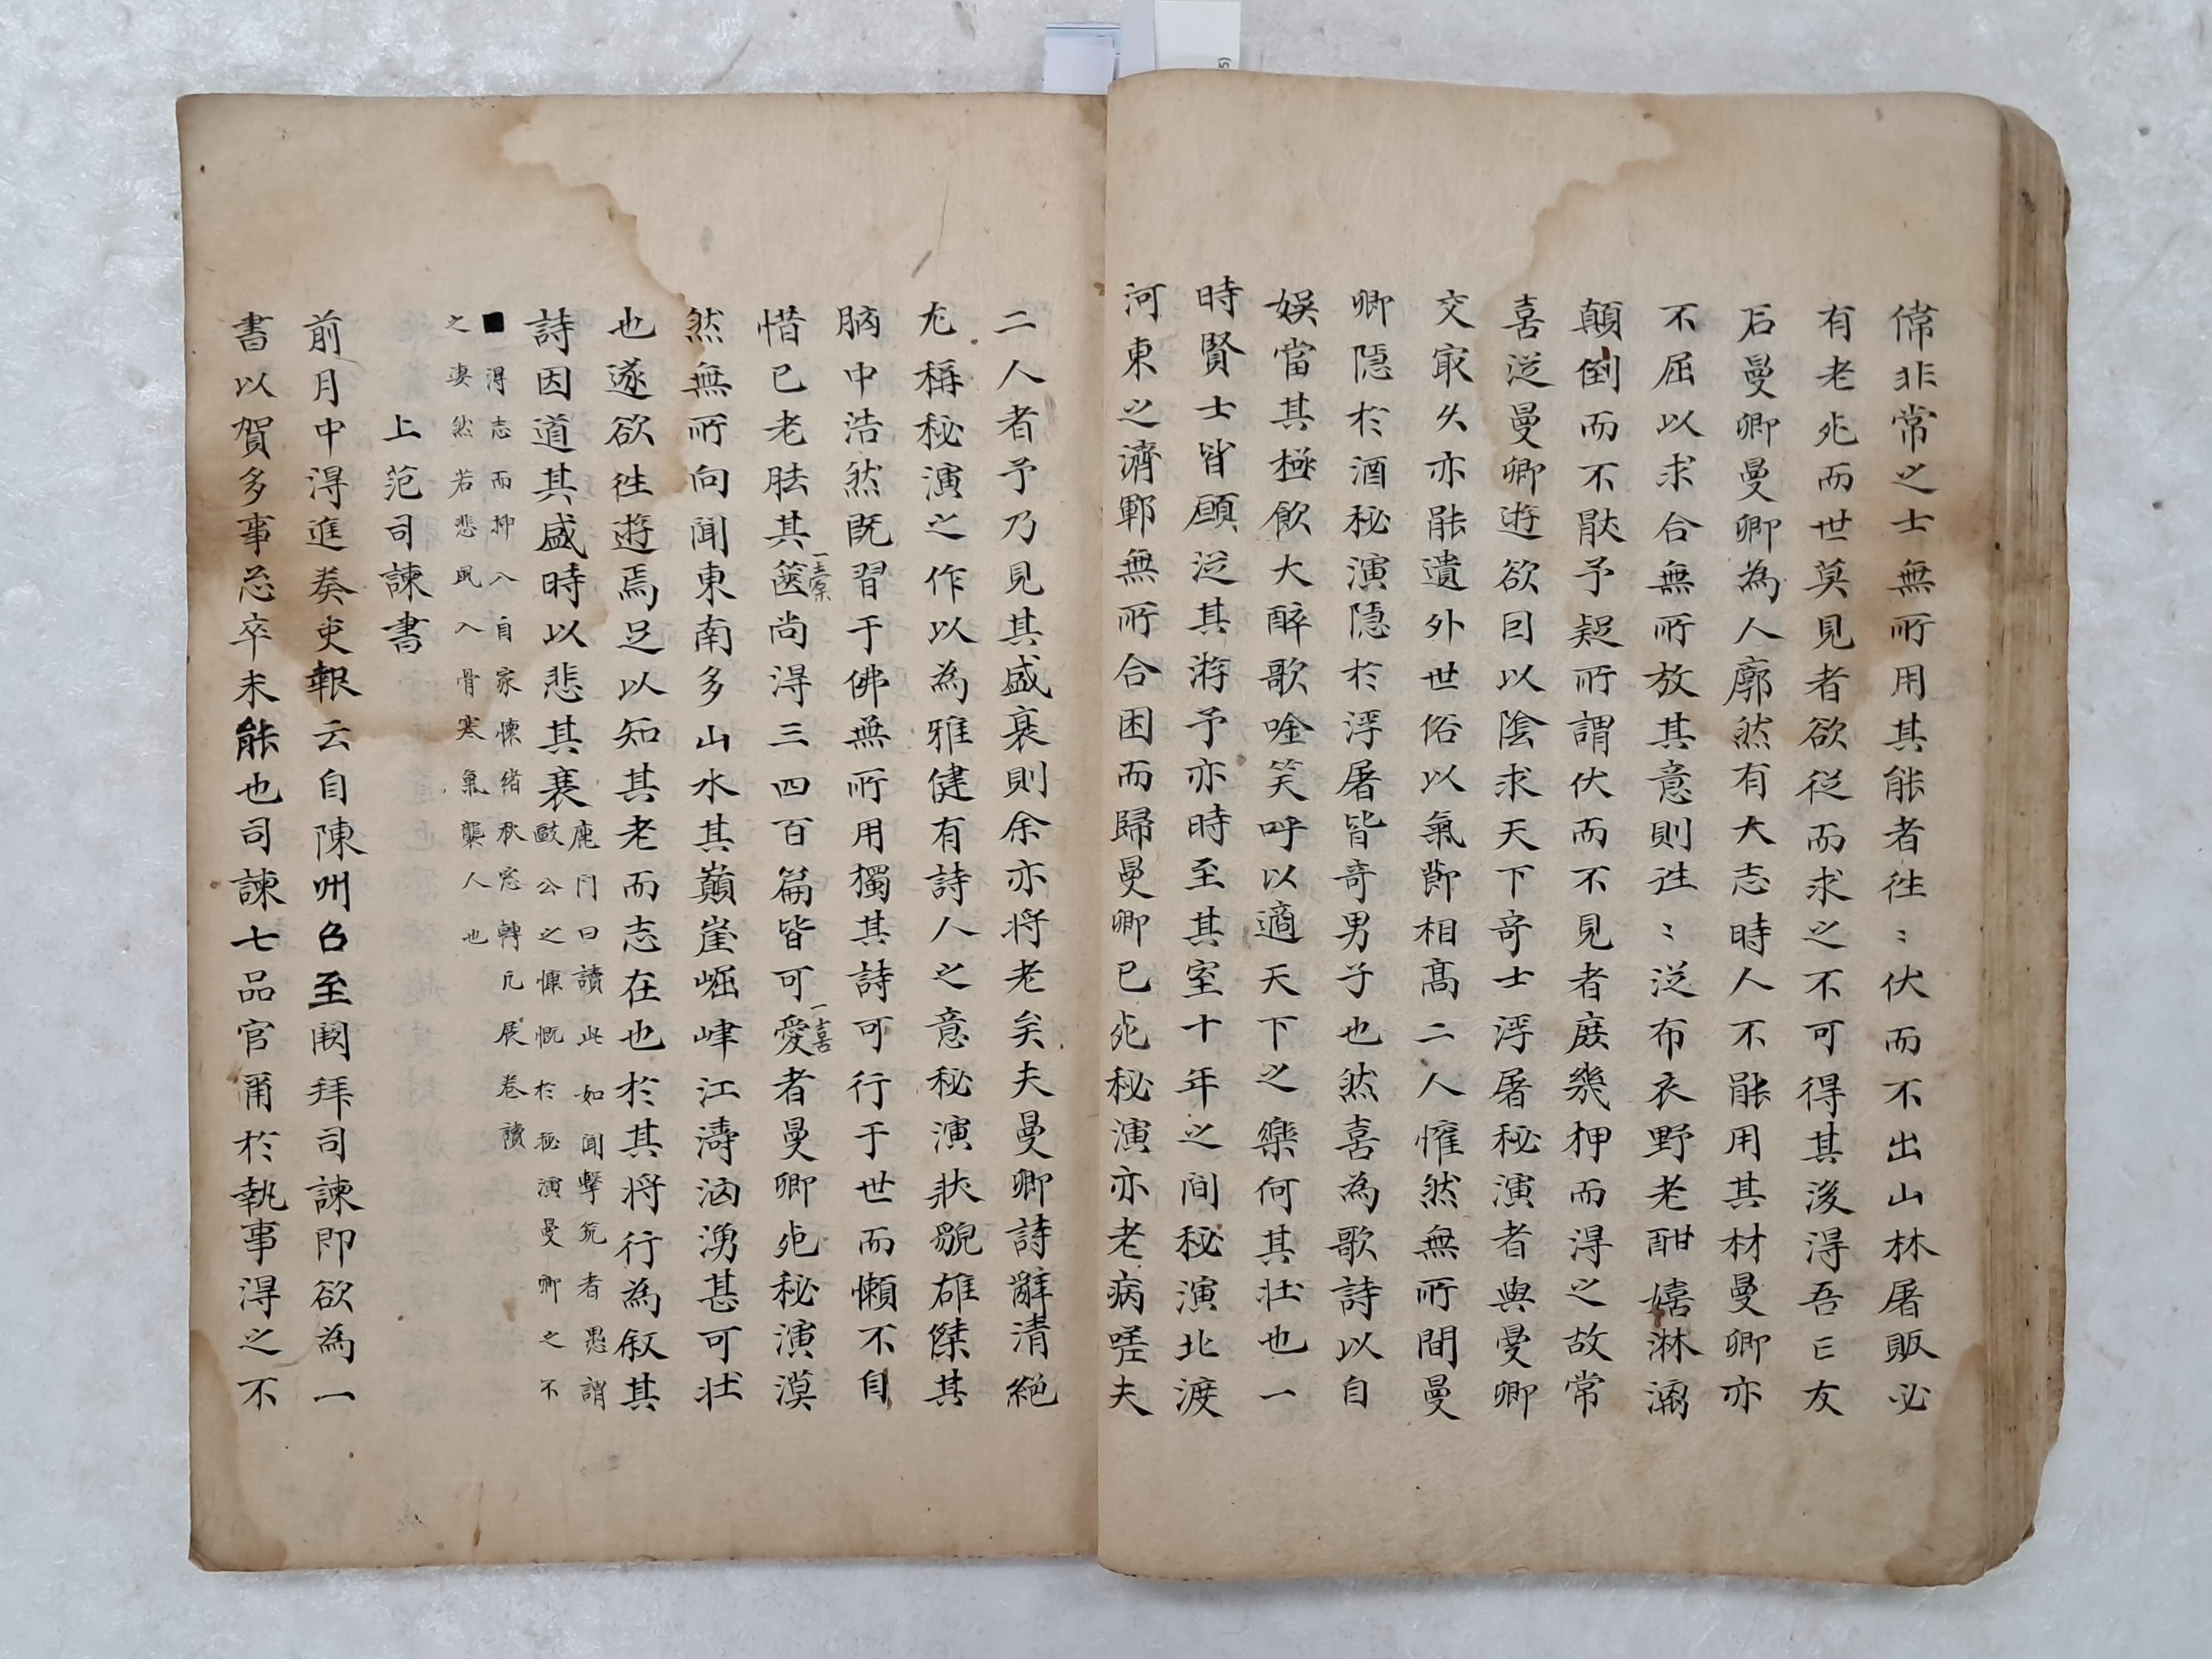 偉非常之士無所用其能者徃〻伏而不出山林屠販必
有老死而世莫見者欲從而求之不可得其後得吾亡友
石曼卿曼卿為人廓然有大志時人不能用其材曼卿亦
不屈以求合無所放其意則徃〻從布衣野老酣嬉淋漓
顛倒而不猒予疑所謂伏而不見者庶幾狎而得之故常
喜從曼卿遊欲因以陰求天下奇士浮屠秘演者與曼卿
交最久亦能遺外世俗以氣節相髙二人懽然無所間曼
卿隱於酒秘演隱於浮屠皆奇男子也然喜為歌詩以自
娛當其極飲大醉歌唫笑呼以適天下之樂何其壯也一
時賢士皆願從其游予亦時至其室十年之間秘演北渡
河東之濟鄆無所合困而歸曼卿已死秘演亦老病嗟夫
二人者予乃見其盛衰則余亦将老矣夫曼卿詩辭清絕
尤稱秘演之作以為雅健有詩人之意秘演狀貌雄傑其
胸中浩然既習于佛無所用獨其詩可行于世而懶不自
惜已老胠其篋尚得三四百篇皆可愛者曼卿死秘演漠
一橐
一喜
然無所向聞東南多山水其巔崖崛峍江濤洶湧甚可壯
也遂欲徃遊焉足以知其老而志在也於其将行為叙其
詩因道其盛時以悲其衰
鹿門曰讀此如聞擊筑者愚謂
歐公之慷慨於秘演曼卿之不
■得志而抑入自家懷緒秋窓轉几展卷讀
之凄然若悲風入骨寒氣襲人也
上范司諫書
前月中得進奏吏報云自陳州召至闕拜司諫即欲為一
書以賀多事怱卒未能也司諫七品官爾於執事得之不